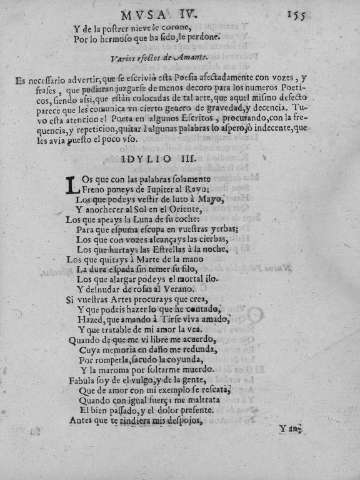 MVSA IV. 155
Y de la postrer nieve le corone,
Por lo hermoso que ha sido, le perdone.
Varios efectos de Amante.
Es necessario advertir, que se escriviò esta Poesia afectadamente con vozes, y
frases, que pudieran juzgarse de menos decoro para los numeros Poeti-
cos, siendo assi, que estàn colocadas de tal arte, que aquel mismo defecto
parece que les comunica vn cierto genero de gravedad, y decencia. Tu-
vo esta atencion el Poeta en algunos Escritos, procurando, con la fre-
quencia, y repeticion, quitar à algunas palabras lo aspero, ò indecente, que
les avia puesto el poco vso.
IDYLIO III.
LOs que con las palabras solamente
Freno poneys de Iupiter al Rayo;
Los que podeys vestir de luto à Mayo,
Y anochecer al Sol en el Oriente,
Los que apeays la Luna de su coche;
Para que espuma escupa en vuestras yerbas;
Los que con vozes alcançays las ciervas,
Los que hurtays las Estrellas à la noche,
Los que quitays à Marte de la mano
La dura espada sin temer su filo,
Los que alargar podeys el mortal ilo.
Y desnudar de rosas al Verano.
Si vuestras Artes procurays que crea,
Y que podeis hazer lo que he contado,
Hazed, que amando à Tirse viva amado,
Y que tratable de mi amor la vea.
Quando de que me vi libre me acuerdo,
Cuya memoria en daño me redunda,
Por romperla, sacudo la coyunda,
Y la maroma por soltarme muerdo.
Fabula soy de el vulgo, y de la gente,
Que de amor con mi exemplo se rescata,
Quando con igual fuerça me maltrata
El bien passado, y el dolor presente.
Antes que te rindiera mis despojos,